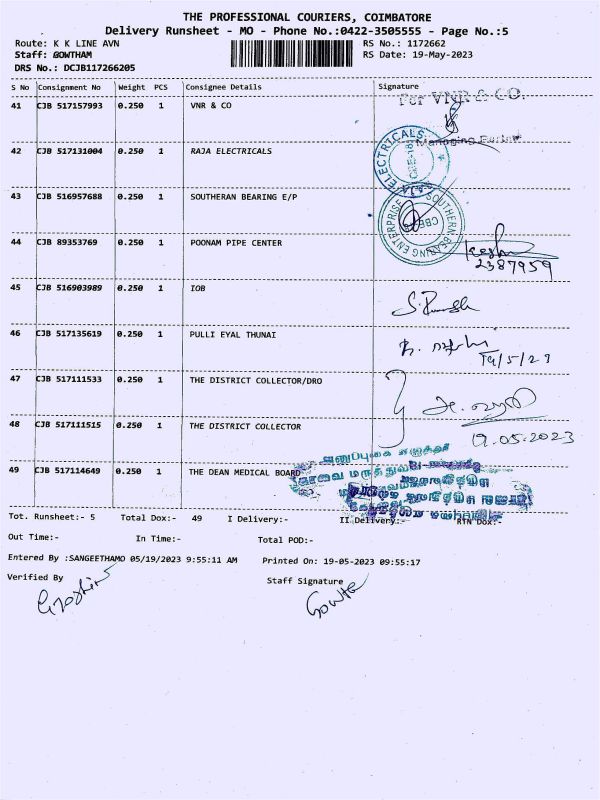 THE PROFESSIONAL COURIERS, COIMBATORE
Delivery Runsheet - MO - Phone No.:0422-3505555 - Page No.:5
Route: K K LINE AVN
RS No.: 1172662
Staff: GOWTHAM
RS Date: 19-May-2023
DRS No.: DCJB117266205
S No Consignment No Weight PCS Consignee Details Signature
41 CJB 517157993 0.250 1 VNR & CO
For VNR & CO.
Managing Partner
42 CJB 517131004 0.250 1 RAJA ELECTRICALS
ELECTRICALS
43 CJB 516957688 0.250 1 SOUTHERAN BEARING E/P
SOUTHERN BEARING ENTERPRISE
CBE
44 CJB 89353769 0.250 1 POONAM PIPE CENTER
2387959
45 CJB 516903989 0.250 1 IOB
46 CJB 517135619 0.250 1 PULLI EYAL THUNAI
19/5/23
47 CJB 517111533 0.250 1 THE DISTRICT COLLECTOR/DRO
48 CJB 517111515 0.250 1 THE DISTRICT COLLECTOR
19.05.2023
49 CJB 517114649 0.250 1 THE DEAN MEDICAL BOARD
Tot. Runsheet:- 5 Total Dox:- 49 I Delivery:- II Delivery:- RTN Dox:-
Out Time:- In Time:- Total POD:-
Entered By :SANGEETHAMO 05/19/2023 9:55:11 AM Printed On: 19-05-2023 09:55:17
Verified By
Staff Signature